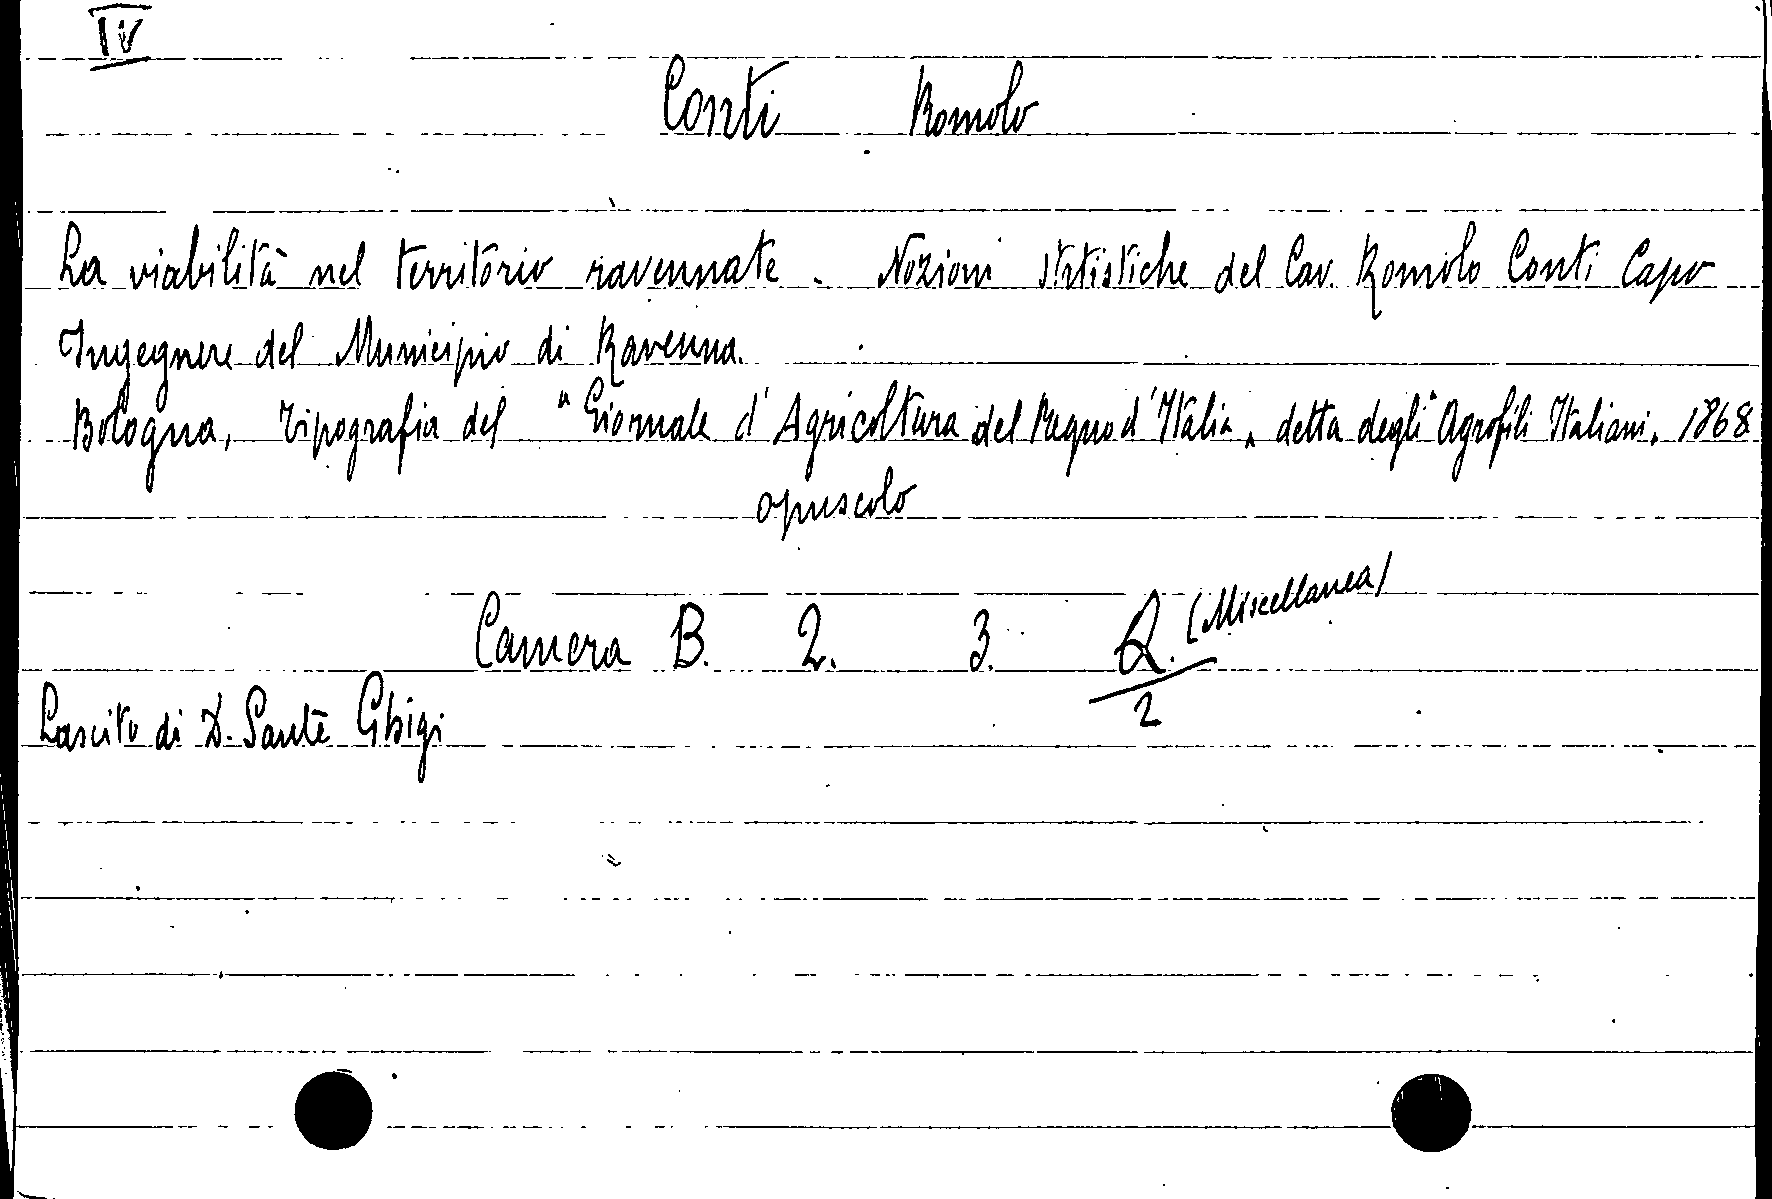 IV
Conti Romolo
La viabilità nel territorio ravennate. Nozioni statistiche del Cav. Romolo Conti Capo
Ingegnere del Municipio di Ravenna.
Bologna, Tipografia del "Giornale d'Agricoltura del Regno d'Italia" detta degli "Agrofili Italiani. 1868
opuscolo
Camera B. 2. 3. Q. (Miscellanea)
2
Lascito di D. Sante Ghigi